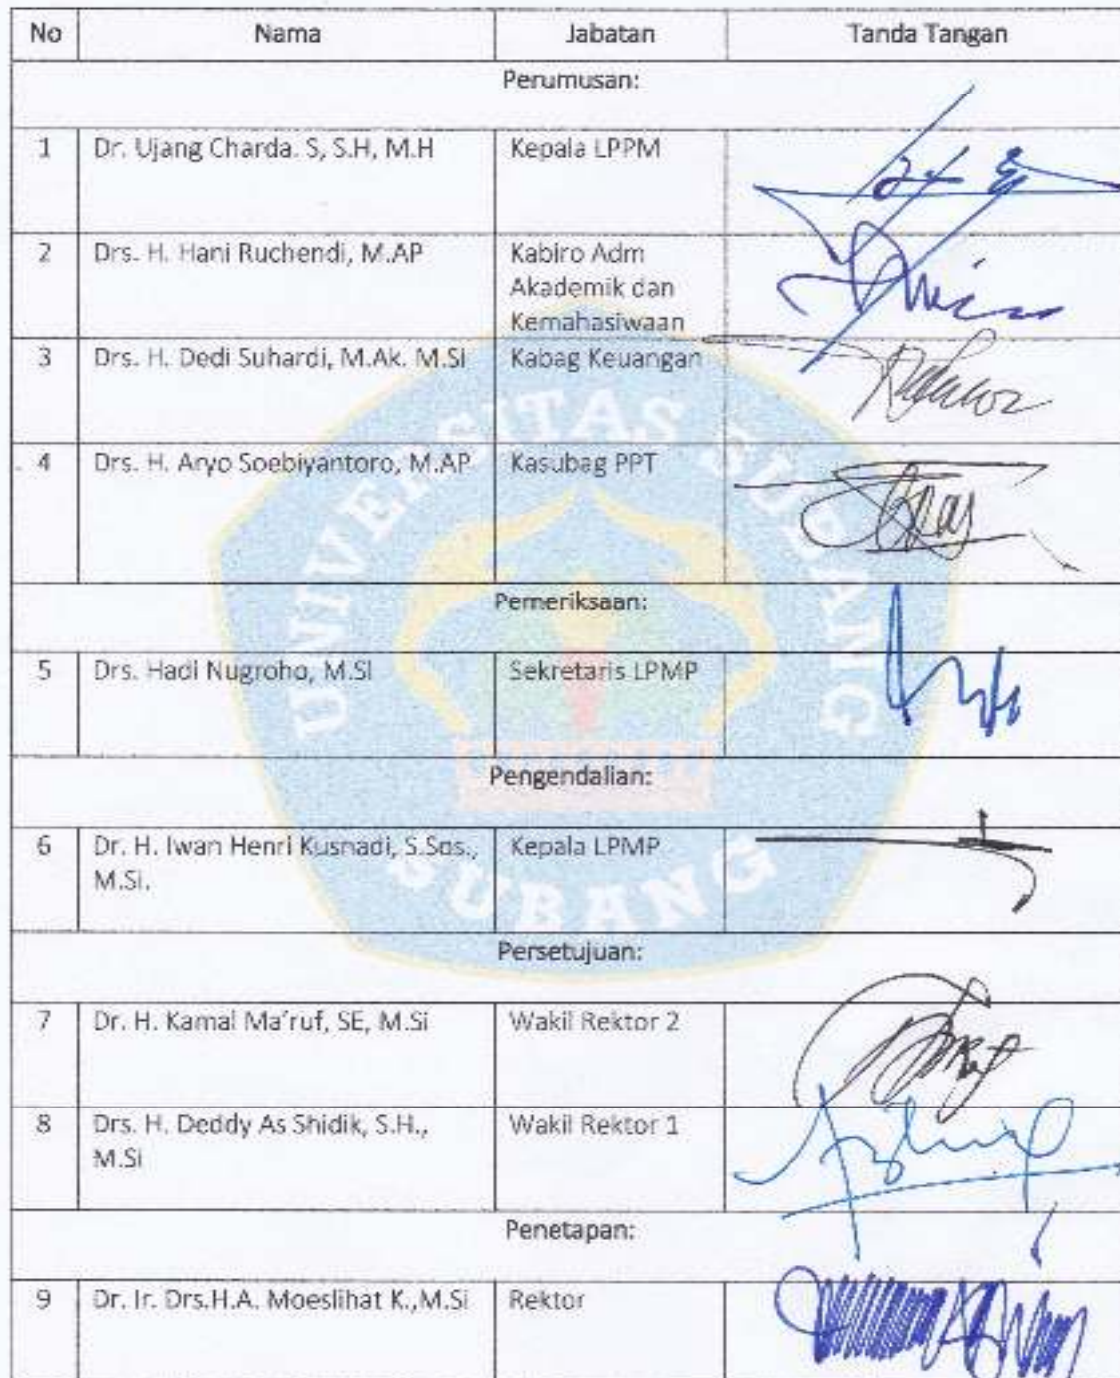 No Nama Jabatan Tanda Tangan
Perumusan:
1 Dr. Ujang Charda. S, S.H, M.H Kepala LPPM
2 Drs. H. Hani Ruchendi, M.AP Kabiro Adm
Akademik dan
Kemahasiwaan
3 Drs. H. Dedi Suhardi, M.Ak. M.Si Kabag Keuangan
4 Drs. H. Aryo Soebiyantoro, M.AP Kasubag PPT
Pemeriksaan:
5 Drs. Hadi Nugroho, M.Si Sekretaris LPMP
Pengendalian:
6 Dr. H. Iwan Henri Kusnadi, S.Sos., Kepala LPMP
M.Si.
Persetujuan:
7 Dr. H. Kamal Ma'ruf, SE, M.Si Wakil Rektor 2
8 Drs. H. Deddy As Shidik, S.H., Wakil Rektor 1
M.Si
Penetapan:
9 Dr. Ir. Drs.H.A. Moeslihat K.,M.Si Rektor
UNIVERSITAS SUBANG
SUBANG